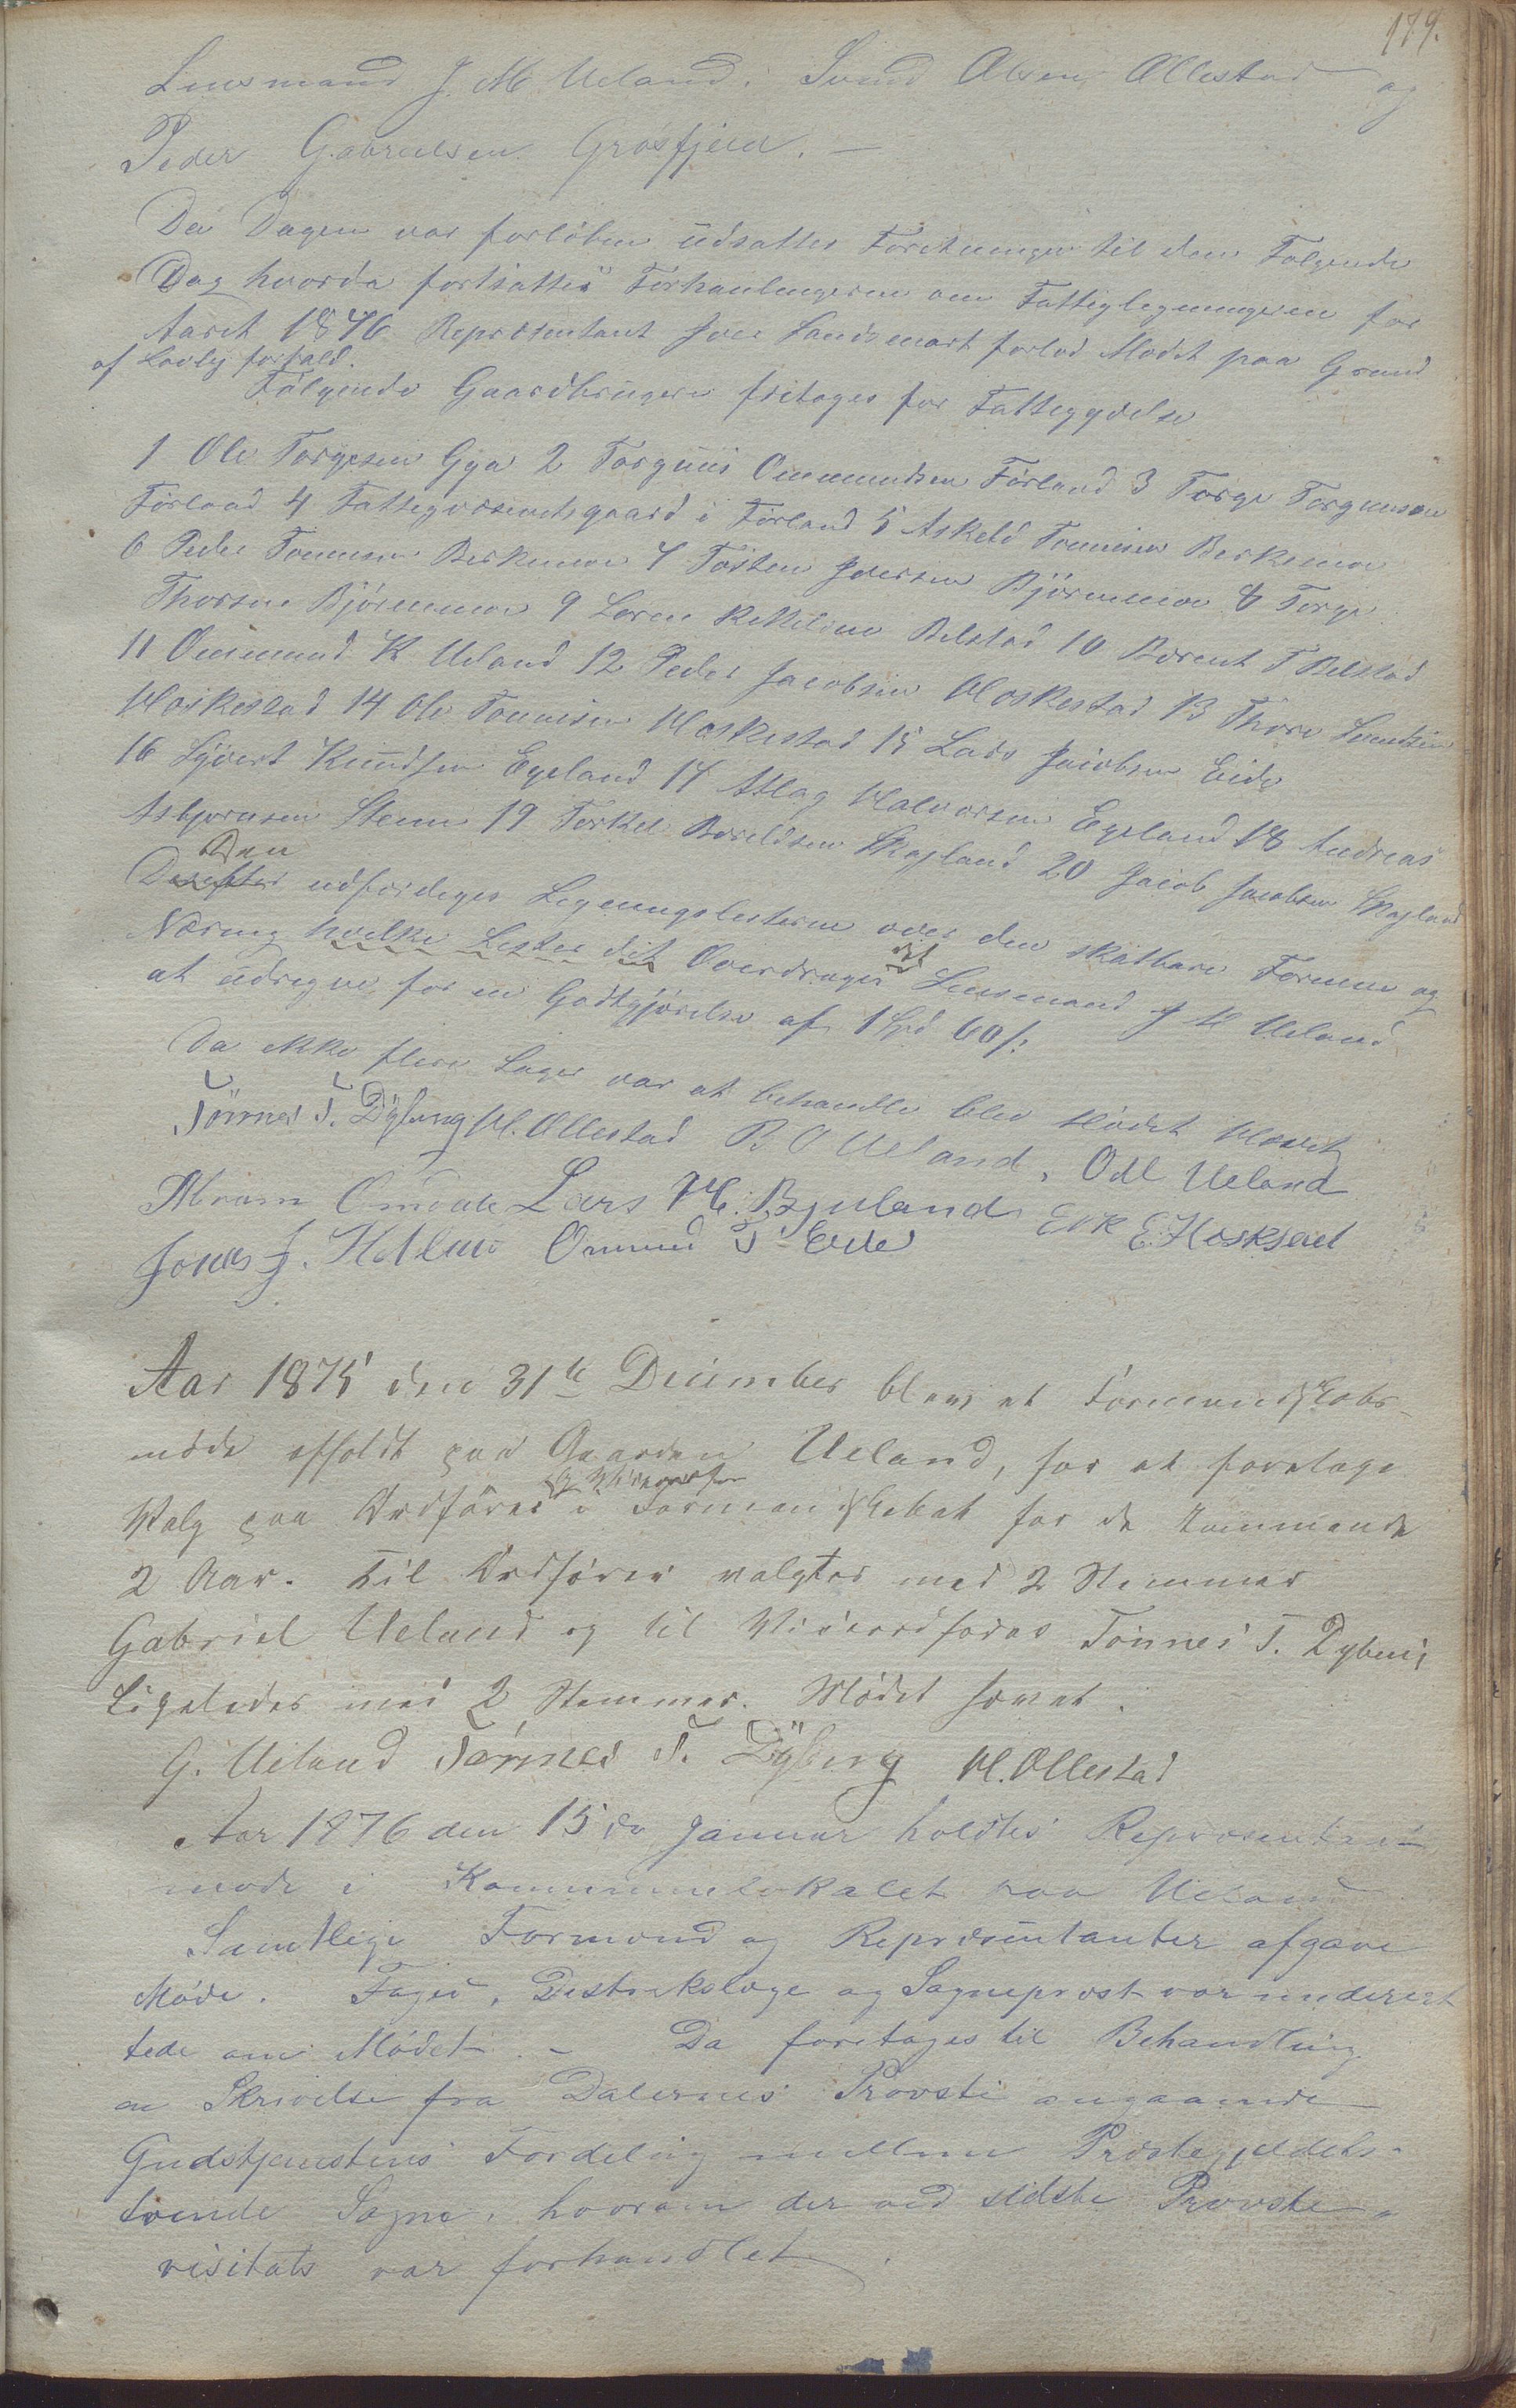 179.
Lensmand J. M. Ueland, Svend Olsen Ollestad og
Peder Gabrielsen Grøsfjeld. —
Da Dagen var forløben udsattes Foretningen til den Følgende
Dag hvorda fortsattes Forhanlingerne om Fattiglegningen for
Aaret 1876 Repræsentant Iver Sandsmark forlod Mødet paa Grund
af Lovlig forfald.
Følgende Gaardbrugere fritages for Fattigydelse
1 Ole Torgesen Gya 2 Torguus Ommundsen Førland 3 Torge Torgusen
Førland 4 Fattigvæsenetsgaard i Førland 5 Askeld Tønnesen Berkemoe
6 Peder Tønnesen Berkemoe 7 Tosten Iversen Bjørnemoe 8 Torge
Thorsen Bjørnemoe 9 Søren Ketelsen Bilstad 10 Berent T Bilstad
11 Ommund K Ueland 12 Peder Jacobsen Moskestad 13 Thore Svendsen
Moskestad 14 Ole Tønnesen Moskestad 15 Lars Jacobsen Eide
16 Sjivert Knudsen Egeland 17 Atlag Halvorsen Egeland 18 Andreas
Asbjørnsen Steene 19 Torkel Boreldsen Skagland 20 Jacob Jacobsen Skagland
Den
Derefter udferdiges Legningslisterne over den skatbare Formue og
Næring hvilke Lister det Overdrages Lensmand J M Ueland
at udregne for en Godtgjørelse af 1 Spd 60 s:
Da ikke flere Sager var at behandle blev Mødet Hævet
Tønnes T. Dybing M. Ollestad B O Ueland, Odl Ueland
Abram Omdale Lars M. Bjuland Erk E. Hoskstad
Jonas J. Hetlan Ommund T Eide
Aar 1875 den 31te December blev et Formandskabs-
møde afholdt paa Gaarden Ueland, for at foretage
og Viseordfør
Valg paa Ordfører i Formandskabet for de kommende
2 Aar. Til Ordfører valgtes med 2 Stemmer
Gabriel Ueland og til Viseordfører Tønnes T. Dybing
Ligeledes med 2 Stemmer. Mødet hævet.
G. Ueland Tønnes T. Dybing M. Ollestad
Aar 1876 den 15de Januar holdtes Repræsentant-
møde i Kommunelokalet paa Ueland
Samtlige Formænd og Repræsentanter afgave
Møde. Foged, Distrikslæge og Sogneprest var underret
tede om Mødet. – Da foretages til Behandling
en Skrivelse fra Dalernes Provsti angaaende
Gudstjenestens Fordeling mellem Præstegjeldets
tvende Sogne, hvorom der ved sidste Provste-
visitats var forhandlet.